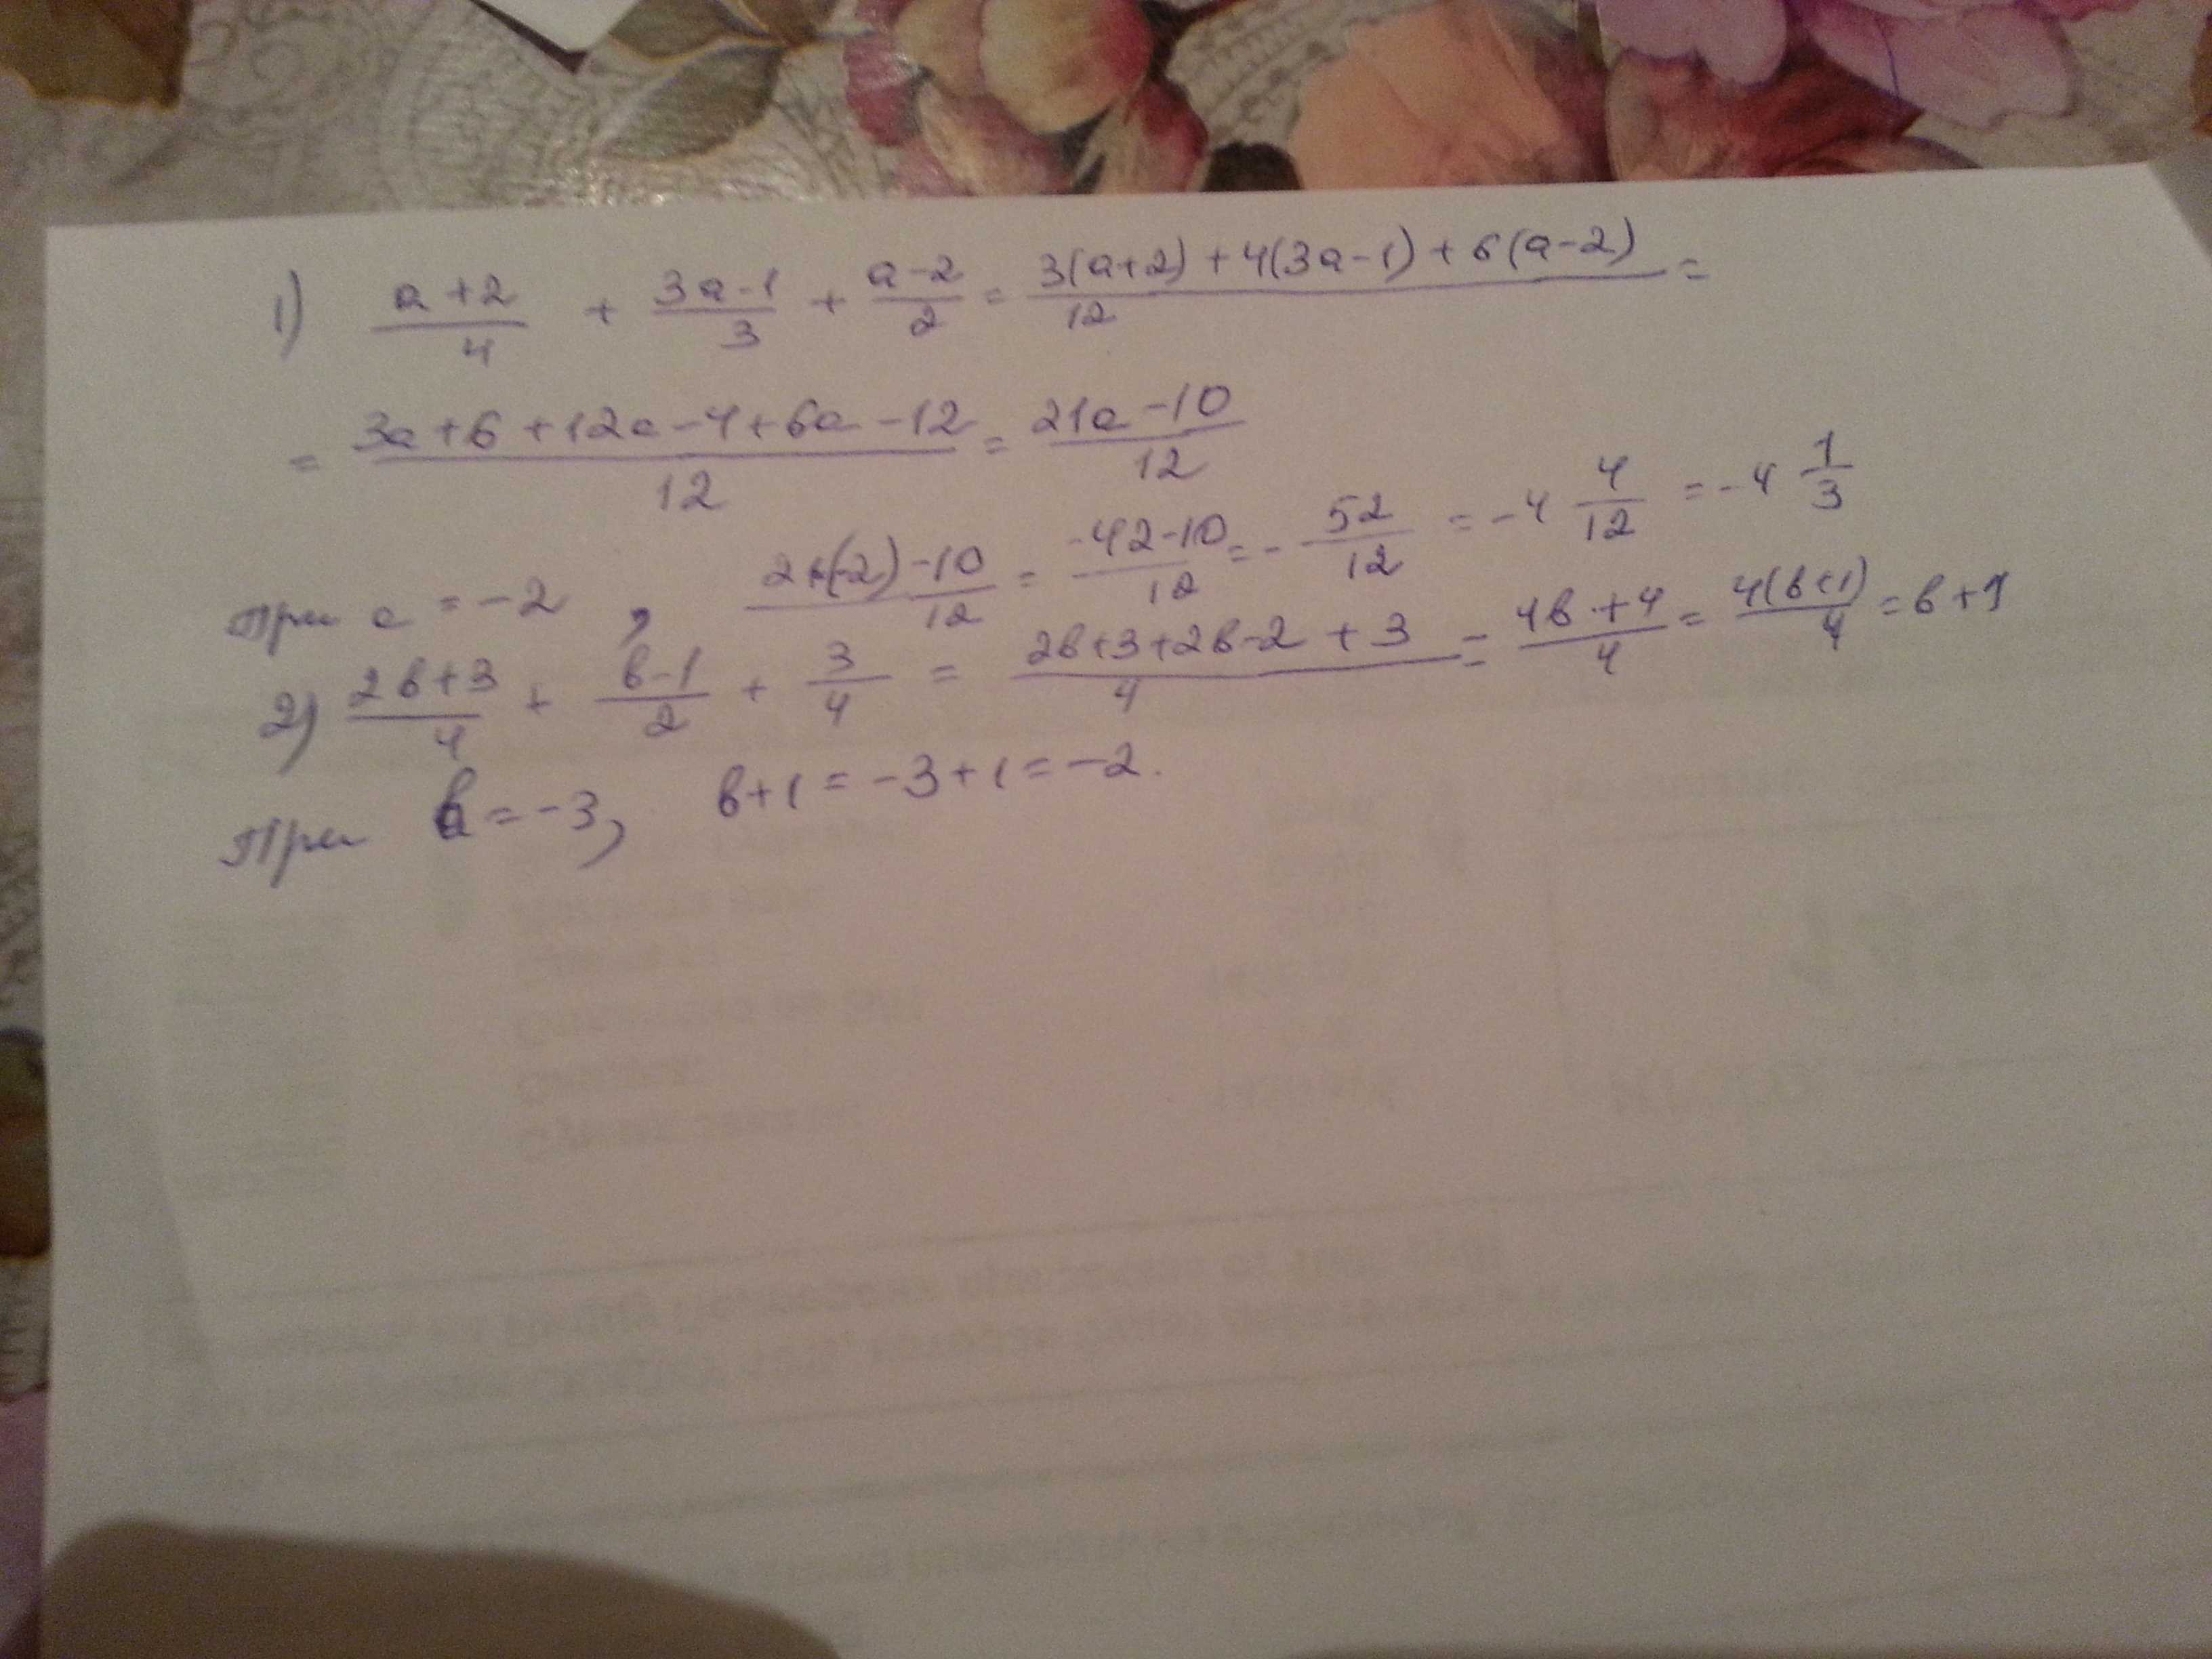 1) a+2/4 + 3a-1/3 + a-2/2 = 3(a+2)+4(3a-1)+6(a-2)/12 =
= 3a+6+12a-4+6a-12/12 = 21a-10/12
При a = -2, 21(-2)-10/12 = -42-10/12 = -52/12 = -4 4/12 = -4 1/3
2) 2в+3/4 + в-1/2 + 3/4 = 2в+3+2в-2+3/4 = 4в+4/4 = 4(в+1)/4 = в+1
При в = -3, в+1 = -3+1 = -2.